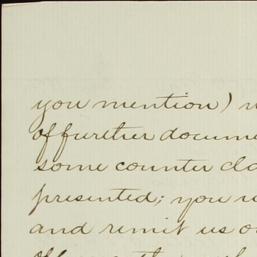 you mention)
of further docume
some counter cla
presented; you
and remit us